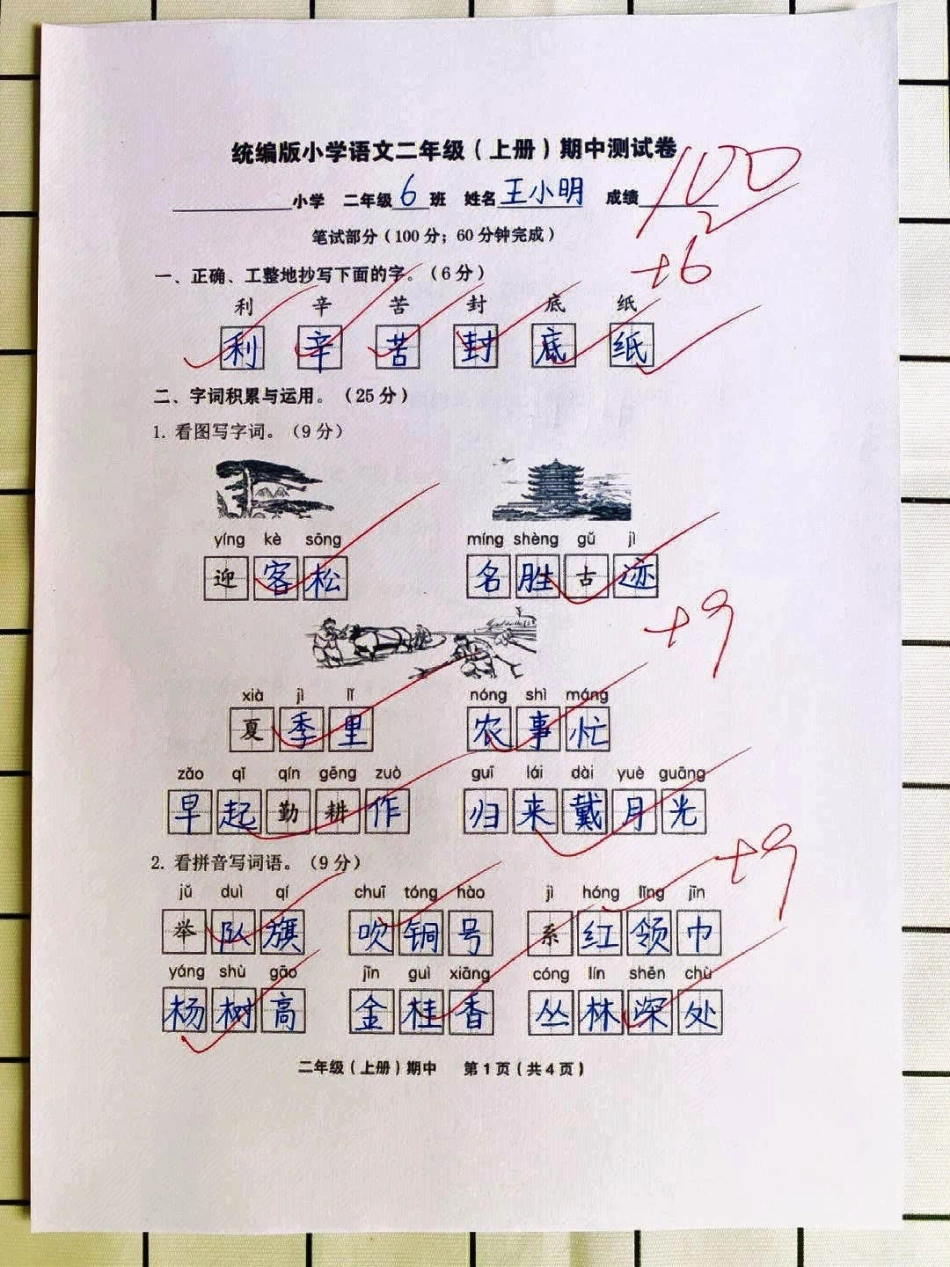 统编版小学语文二年级（上册）期中测试卷
小学 二年级6班 姓名王小明 成绩100
笔试部分（100分；60分钟完成）
+6
一、正确、工整地抄写下面的字。（6分）
利 辛 苦 封 底 纸
利 辛 苦 封 底 纸
二、字词积累与运用。（25分）
1. 看图写字词。（9分）
yíng kè sōng míng shèng gǔ jì
迎客松 名胜古迹
+9
xià jì lǐ nóng shì máng
夏季里 农事忙
zǎo qǐ qín gēng zuò guī lái dài yuè guāng
早起勤耕作 归来戴月光
2. 看拼音写词语。（9分）
+9
jǔ duì qí chuī tóng hào jì hóng lǐng jīn
举队旗 吹铜号 系红领巾
yáng shù gāo jīn guì xiāng cóng lín shēn chù
杨树高 金桂香 丛林深处
二年级（上册）期中 第1页（共4页）